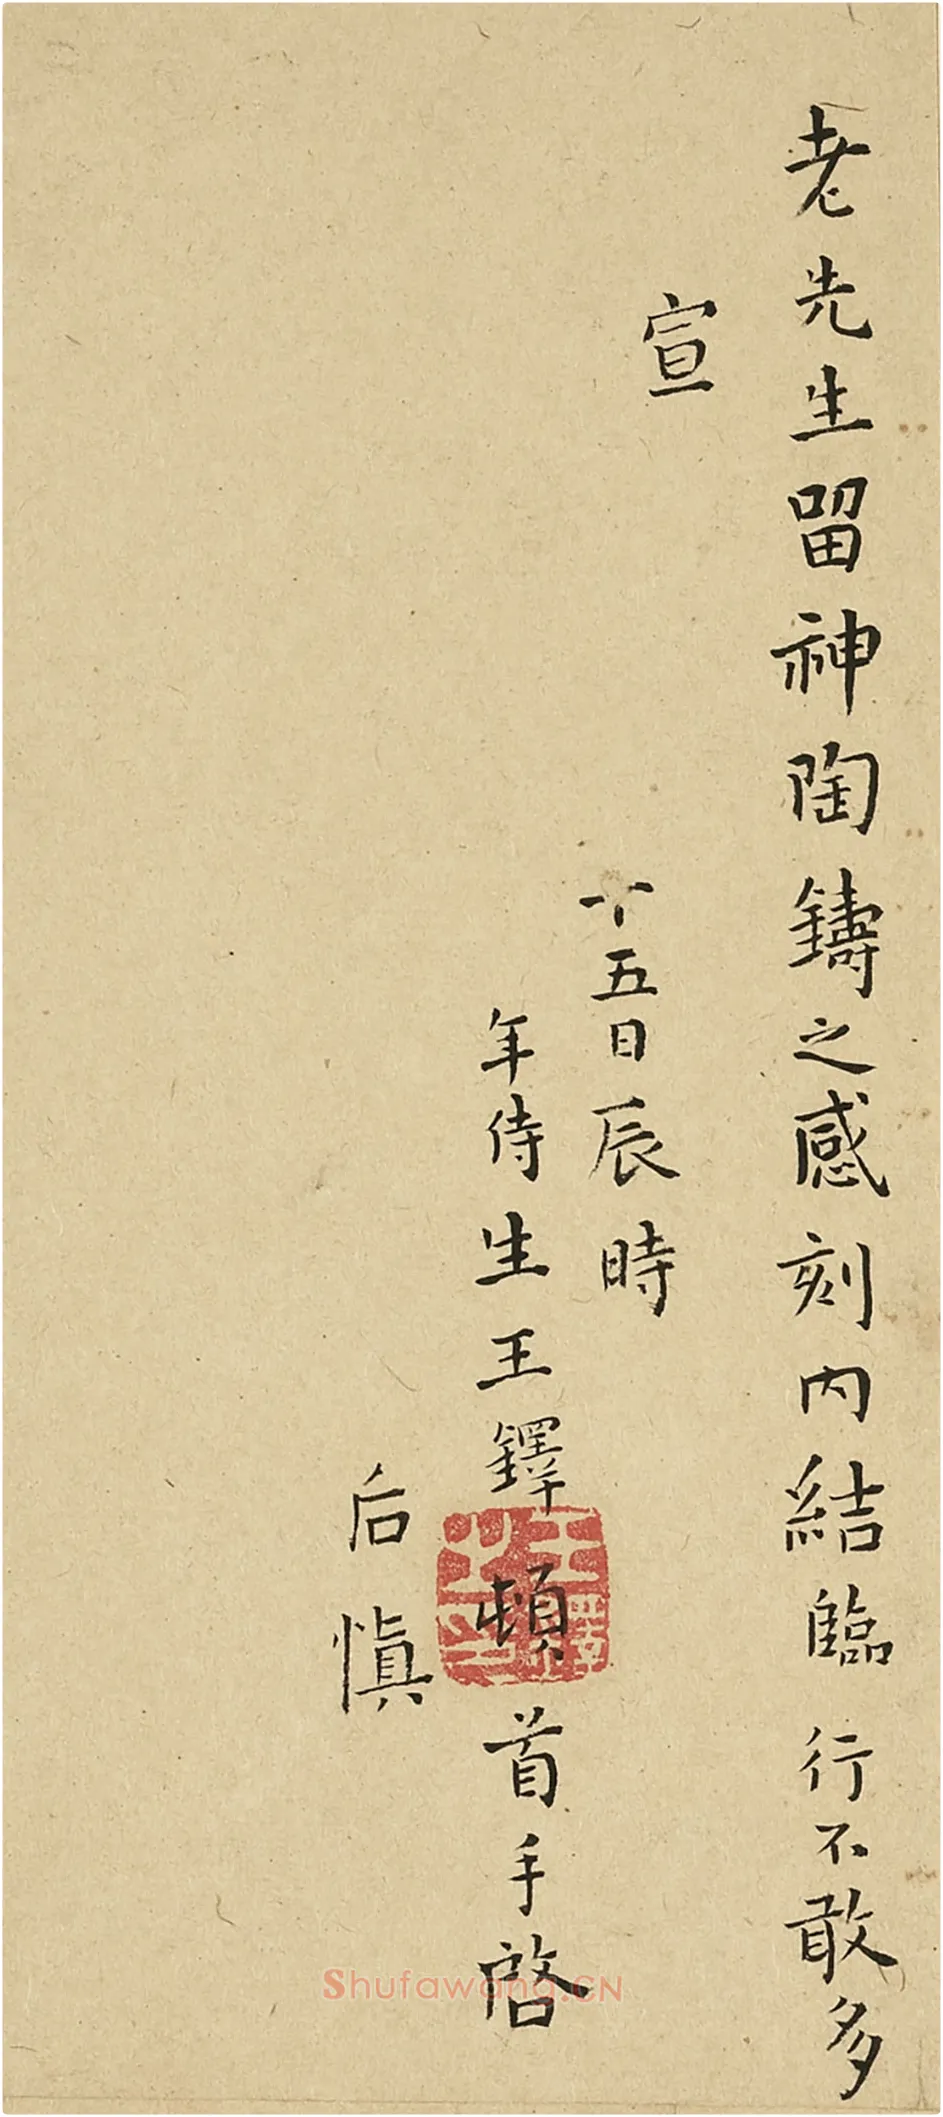 老先生留神陶鑄之感刻内結臨行不敢多
宣
十五日辰時
年侍生王鐸頓首手啓
后慎
王鐸之印
Shufawang.CN